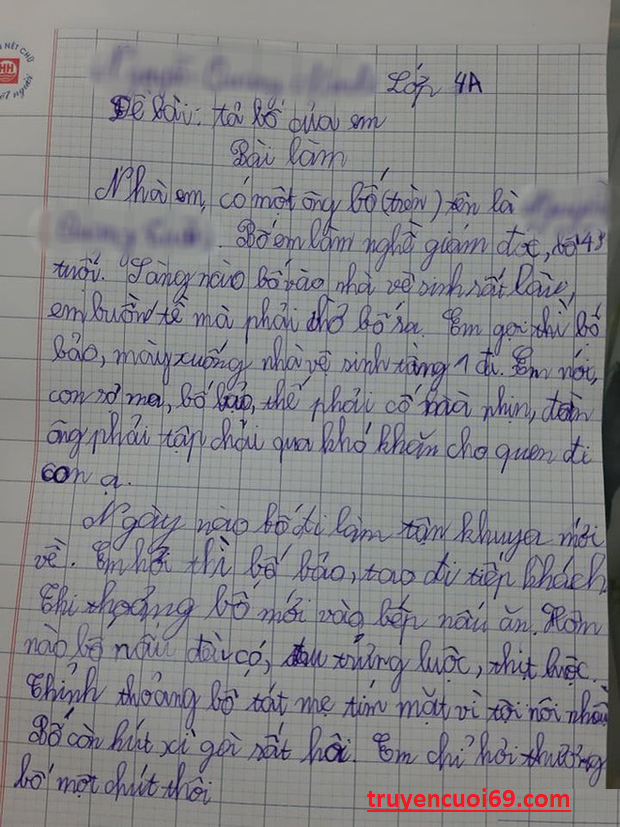 NÉT CHỮ
HH
nết người
Lớp 4A
Đề bài: tả bố của em
Bài làm
Nhà em, có một ông bố (trên) tên là
Bố em làm nghề giám đốc, bố 43
tuổi. Sáng nào bố vào nhà vệ sinh rất lâu,
em buồn tè mà phải chờ bố ra. Em gọi thì bố
bảo, mày xuống nhà vệ sinh tầng 1 đi. Em nói,
con sợ ma, bố bảo, thế phải cố mà nhịn, đàn
ông phải tập chải qua khó khăn cho quen đi
con ạ.
Ngày nào bố đi làm tận khuya mới
về. Em hỏi thì bố bảo, tao đi tiếp khách.
Thi thoảng bố mới vào bếp nấu ăn. Hôm
nào bố nấu đều có, trứng luộc, thịt luộc.
Thỉnh thoảng bố tát mẹ tím mặt vì tội nói nhiều
Bố còn hút xì gà rất hôi. Em chỉ hơi thương
bố một chút thôi
truyencuoi69.com